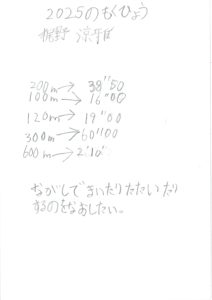 2025のもくひょう
梶野 涼雅
200m→38"50
100m→16"00
120m→19"00
300m→60"00
600m→2'10"
ながしでまいたりたたいたり
するのをなおしたい。